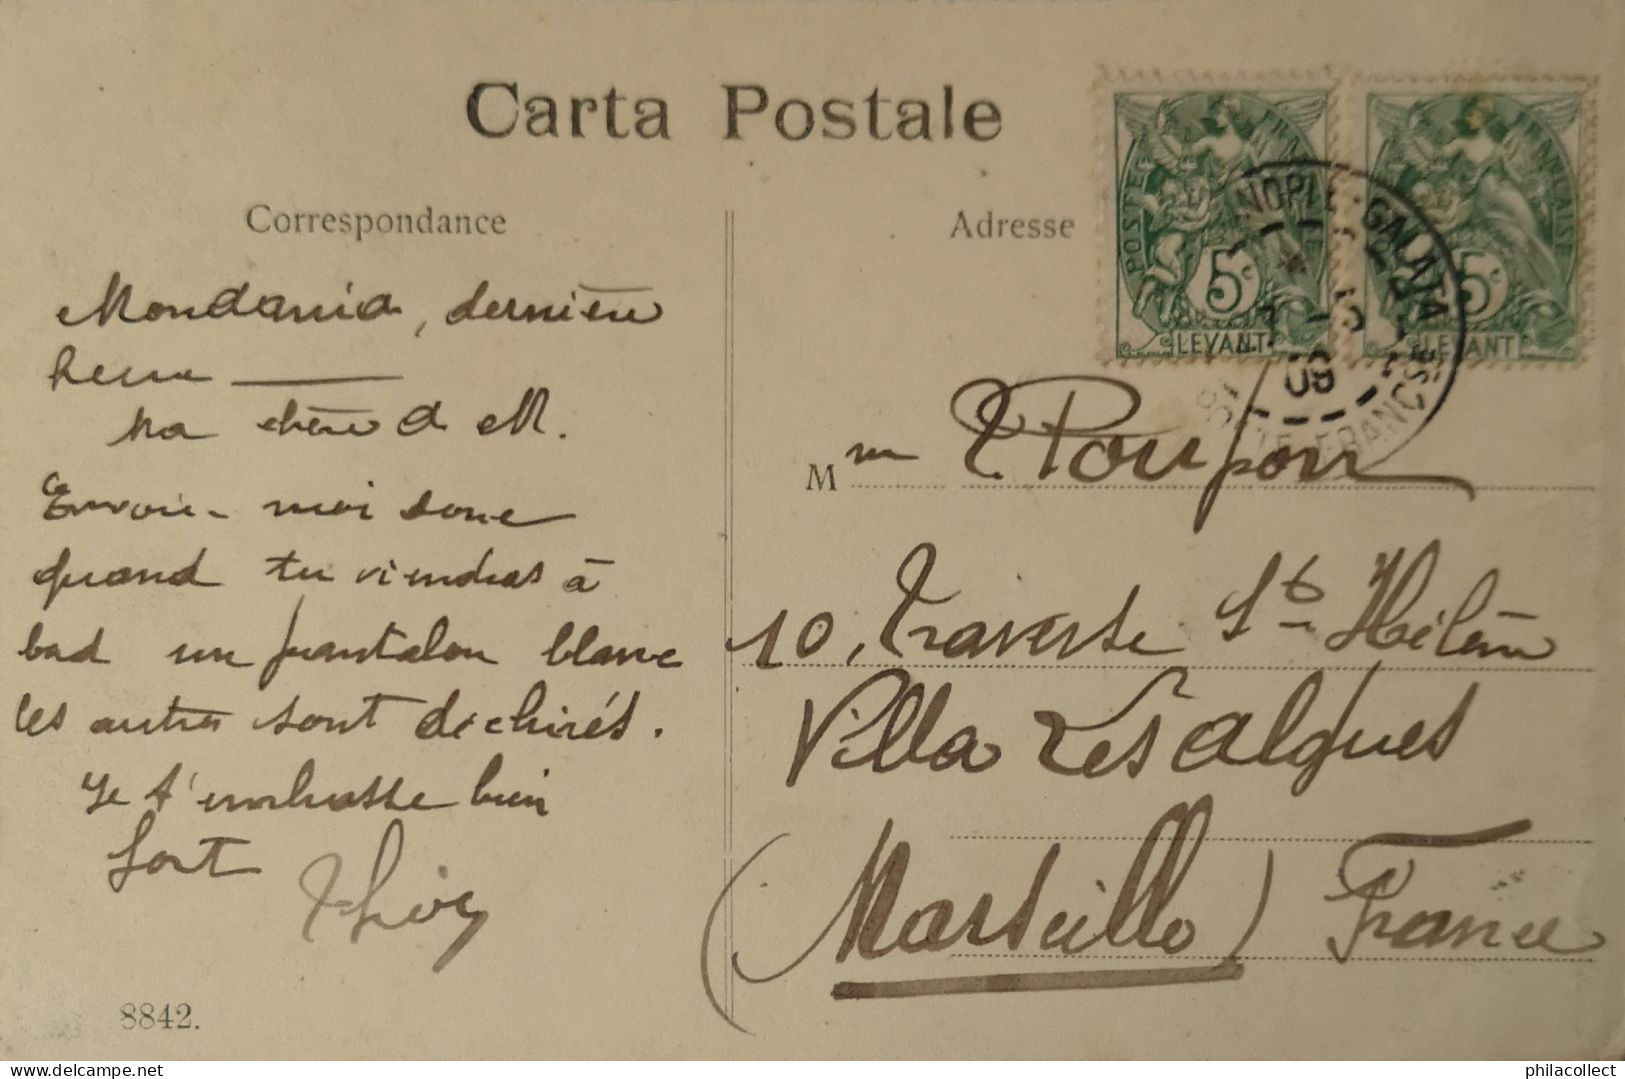 Carta Postale
Correspondance
Adresse
POSTES FRANÇAISES
5c
LEVANT
5c
LEVANT
NOPLE-GALATA
09
POSTE FRANÇAISE
Moudania, dernière
heure
Ma chère a M.
Envoie-moi donc
quand tu viendras à
bord un pantalon blanc
les autres sont déchirés.
Je t'embrasse bien
fort
M me Poupon
10, Traverse Ste Hélène
Villa Les Algues
(Marseille) France
8842.
philacollect